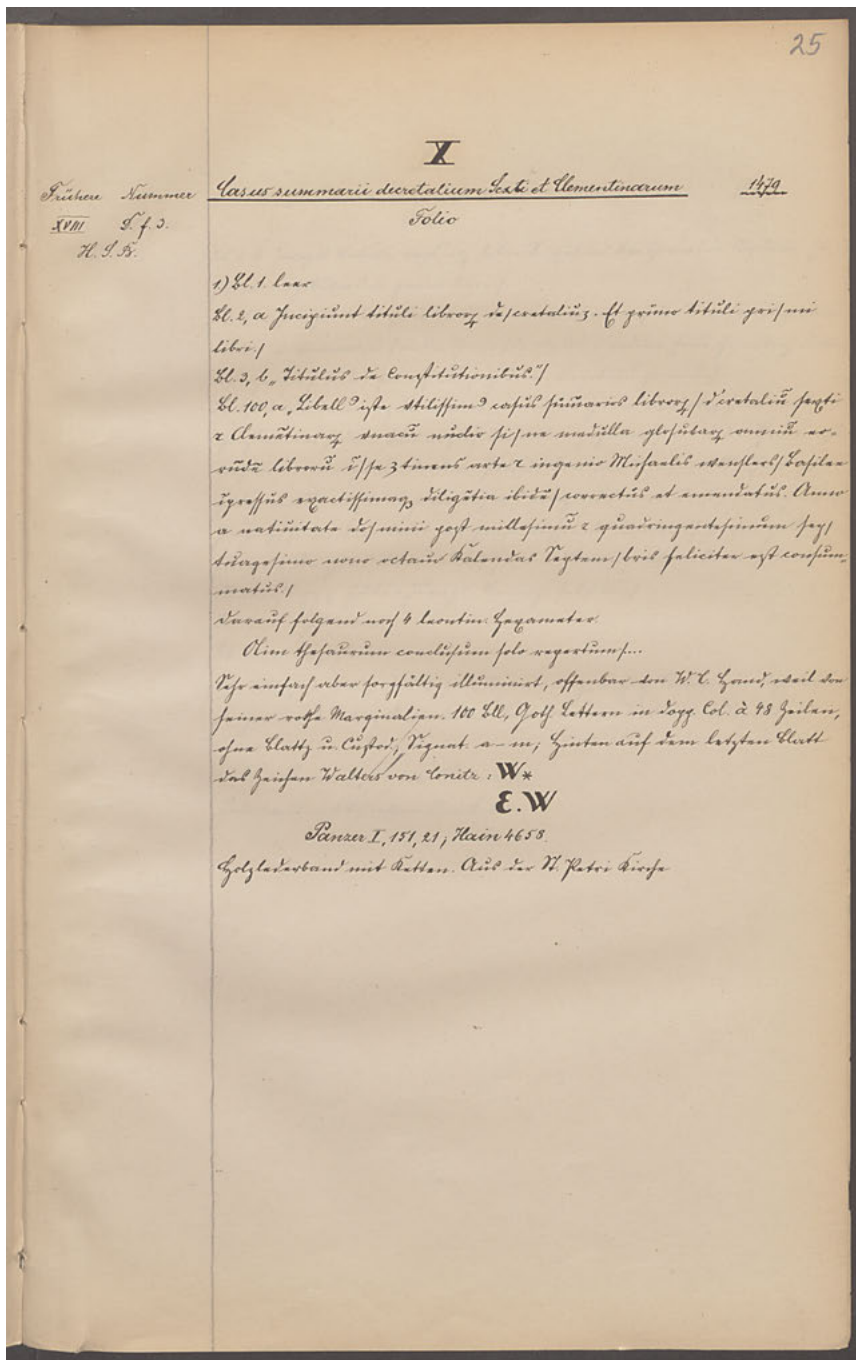 25
X
Frühere Nummer
XVIII D. f. 3.
H. S. Fr.
Casus summarii decretalium Sexti et Clementinarum 1479
Folio
1) Bl. 1. leer
Bl. 2, a Incipiunt tituli libroꝝ de/cretaliuʒ. Et primo tituli pri/mi
libri./
Bl. 3, b „Titulus de Constitutionibus."/
Bl. 100, a „Libellꝰ iste vtilissimꝰ casus sūmarios libroꝝ / d'cretaliū sexti
⁊ Clemētinaꝝ vnacū nucleo si/ne medulla glosulaꝝ omniū eo-
rūdē libroru ī/se ʒtinens arte ⁊ ingenio Michaelis wensslers / Basilee
īpressus exactissimaqꝫ diligētia ibidē / correctus et emendatus. Anno
a natiuitate do/mini post millesimū ⁊ quadringentesimum sep/
tuagesimo nono octauo Kalendas Septem/bris feliciter est consum-
matus./
Darauf folgend noch 4 leonin. Hexameter.
Olim thesaurum conclusum solo repertum/...
Sehr einfach aber sorgfältig illuminirt, offenbar von W. C. Hand, weil von
seiner rothe Marginalien. 100 Bll, Goth. Lettern in dopp. Col. à 48 Zeilen,
ohne Blattz u. Custod, Signat. a–m; Hinten auf dem letzten Blatt
das Zeichen Walters von Conitz: W*
E. W
Panzer I, 151, 21; Hain 4658.
Holzlederband mit Ketten. Aus der St. Petri Kirche